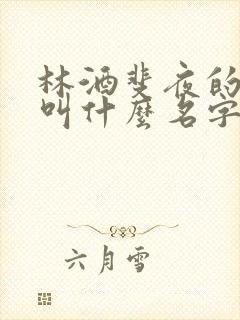 林酒斐夜的
叫什麼名字
六月雪